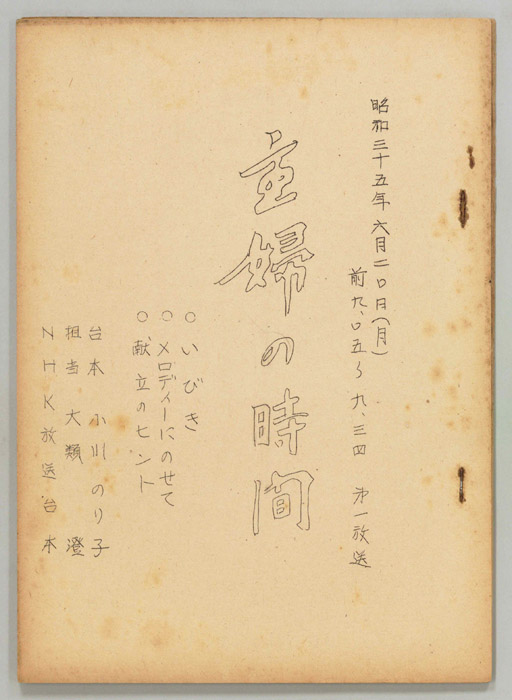 昭和三十五年六月二〇日(月)
前九、〇五〜九、三四 㐧一放送
主婦の時間
○いびき
○メロディーにのせて
○献立のヒント
台本 小川のり子
担当 大類 澄
NHK放送台本